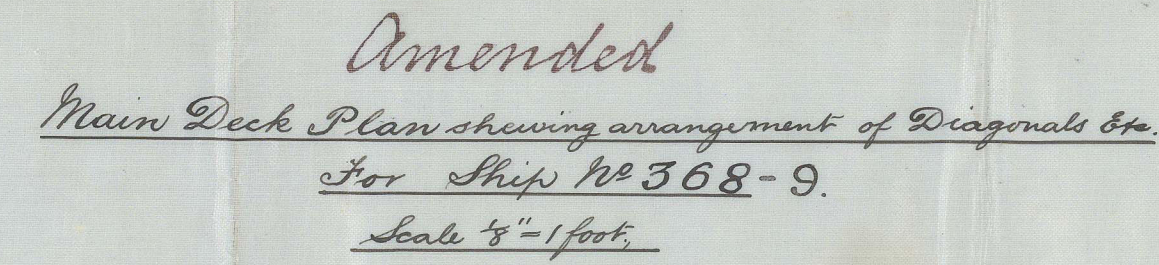 Amended
Main Deck Plan shewing arrangement of Diagonals Etc.
For Ship Nº 368-9.
Scale 1/8" = 1 foot.,